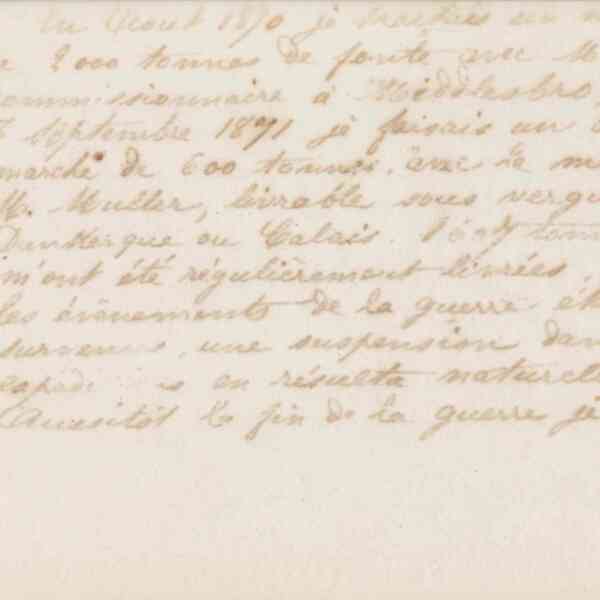 En Aout 1870 je traitais un
2000 tonnes de fonte avec M
commissionnaire à Middlesbro,
Septembre 1871 je faisais un
marché de 600 tonnes, avec le m
Mr. Muller, livrable sous vergu
Dunkerque ou Calais. tonn
m'ont été régulièrement livrées,
les évènements de la guerre ét
survenus, une suspension dan
en résulta naturelle
Aussitôt la fin de la guerre je